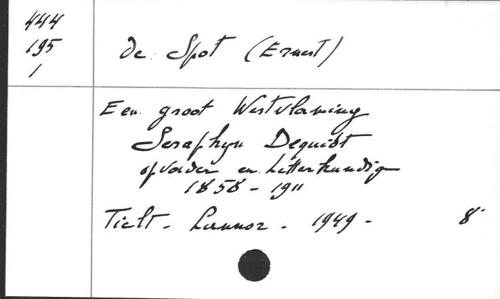 444
195
1
De Spot (Ernest)
Een groot Westvlaming
Seraphyn Dequidt
opvoeder en letterkundig
1858 - 1911
Tielt - Lannoo - 1949 - 8°